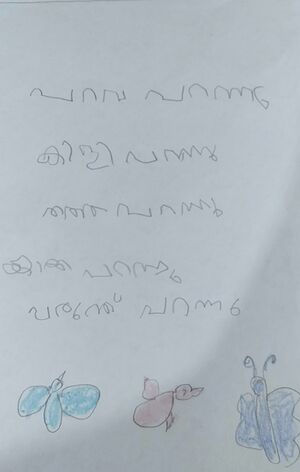 പറവ പറന്നു
കിളി പന്നു
തത്ത പറന്നു
കാക്ക പറന്നു
പരുന്ത് പറന്നു